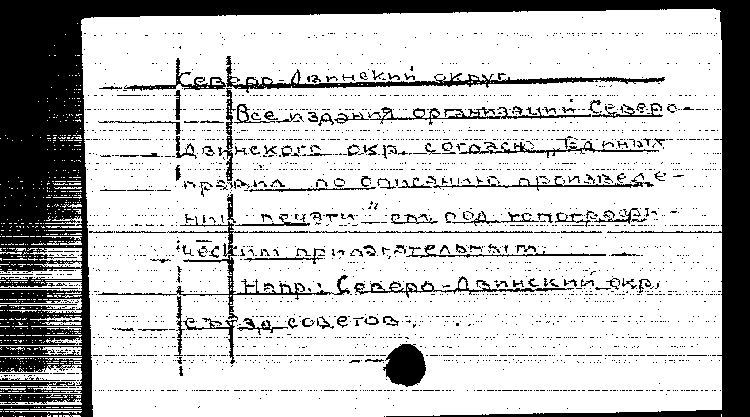 Северо-Двинский округ.
Все издания организаций Северо-
Двинского окр. согласно „Единых
правил по описанию произведе-
ний печати" см. под топографи-
ческим прилагательным.
Напр.: Северо-Двинский окр.
съезд советов.